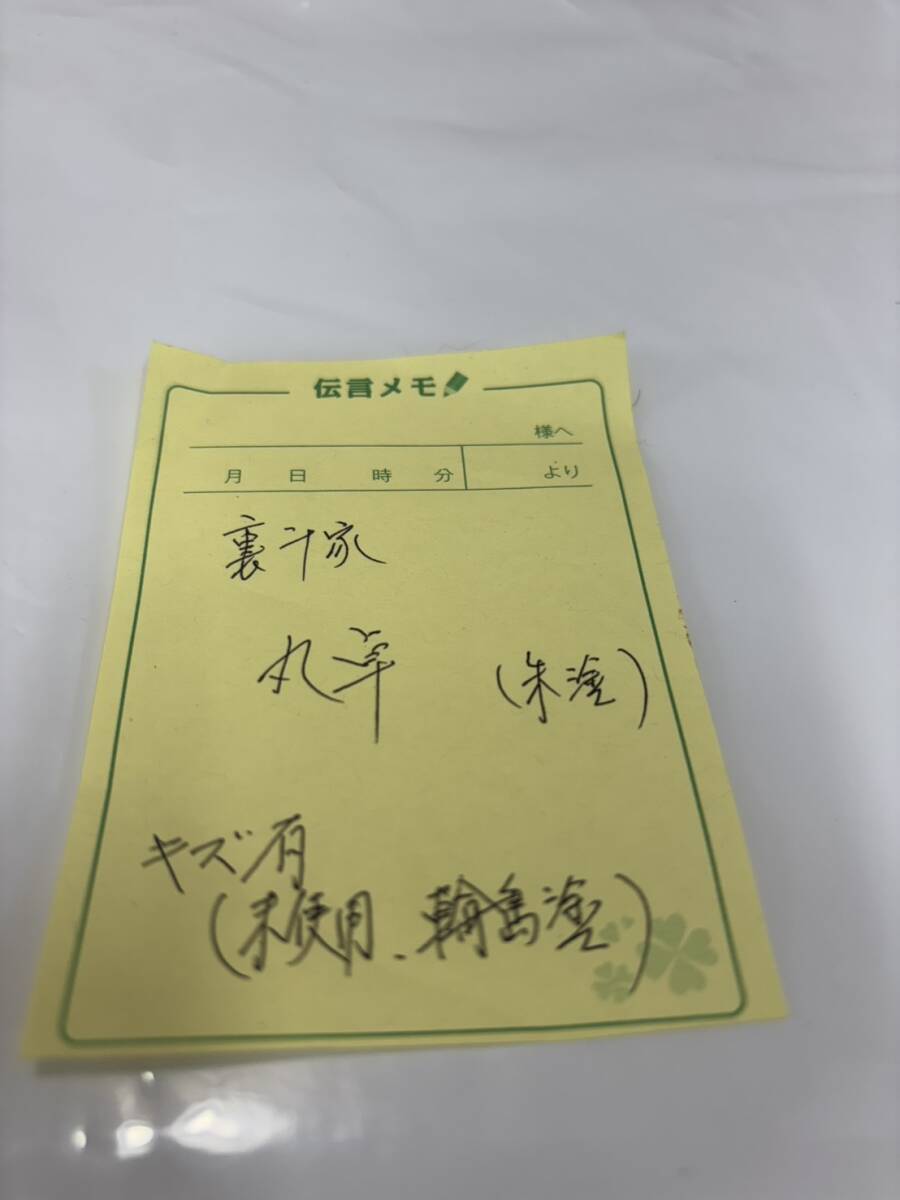 伝言メモ
様へ
月 日 時 分 より
裏千家
丸卓 (朱塗)
キズ有
(未使用、輪島塗)